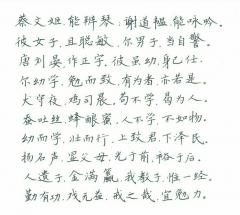 蔡文姬，能辨琴，谢道韫，能咏吟。
彼女子，且聪敏，尔男子，当自警。
唐刘晏，作正字，彼虽幼，身已仕。
尔幼学，勉而致，有为者，亦若是。
犬守夜，鸡司晨，苟不学，曷为人。
蚕吐丝，蜂酿蜜，人不学，不如物。
幼而学，壮而行，上致君，下泽民。
扬名声，显父母，光于前，裕于后。
人遗子，金满籯，我教子，惟一经。
勤有功，戏无益，戒之哉，宜勉力。